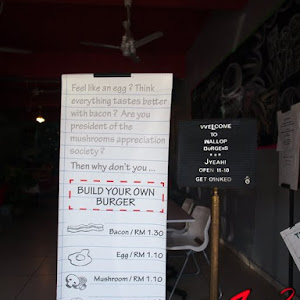 Feel like an egg? Think
everything tastes better
with bacon? Are you
president of the
mushrooms appreciation
society?
Then why don't you ...
BUILD YOUR OWN
BURGER
Bacon / RM 1.30
Egg / RM 1.10
Mushroom / RM 1.10
WELCOME
TO
WALLOP
BURGERS
JYEAH!
OPEN 11-10
GET OINKED